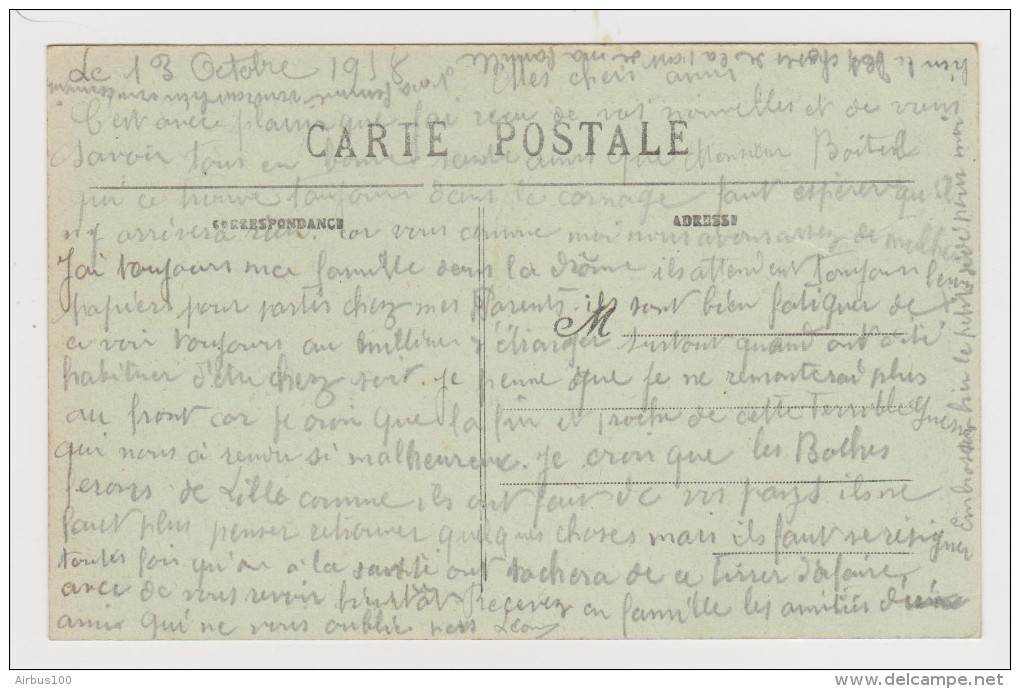 Le 13 Octobre 1918
Mes chers amis
C'est avec plaisir que j'ai reçu de vos nouvelles et de vous
CARTE POSTALE
savoir tous en bonne santé ainsi que Monsieur
qui ce trouve toujours dans le carnage faut espérer qu'il
CORRESPONDANCE
ADRESSE
n'y arrivera rien. car vous comme moi nous avons assez de malheur
J'ai toujours ma famille dans la drôme ils attendent toujours leur
papiers pour partir chez mes Parents. ils sont bien fatiguer de
M
ce voir toujours au millieu d'étranger surtout quand ont a été
habituer d'être chez soit. Je pense que je ne remonterai plus
au front car je croit que la fin et proche de cette terrible guerre
qui nous à rendu si malheureux. Je croit que les Boches
ferons de Lille comme ils ont fait de vos pays ils ne
faut plus penser retrouver quelques choses mais ils faut se résigner
toutes fois qu'on à la santé ont tachera de ce tirrer d'afaire,
avec de vous revoir bientôt recevez en famille les amitiés d'un
amis qui ne vous oublie pas Léon
Embrasser bien le petit dédé pour moi
bien le choses de la part de ma famille
Airbus100
delcampe.net